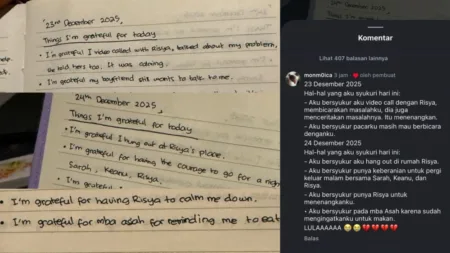 23rd December 2025,
Things I'm grateful for today
• I'm grateful I video called with Risya, talked about my problem,
he told hers too. It was calming.
• I'm grateful my boyfriend still wants to talk to me.
24th December 2025,
Things I'm grateful for today
• I'm grateful I hung out at Risya's place.
• I'm grateful for having the courage to go for a nigh
Sarah, Keanu, Risya.
• I'm grateful
• I'm grateful for having Risya to calm me down.
• I'm grateful for mba asah for reminding me to eat
Komentar
Lihat 407 balasan lainnya
monm0lica 3 jam oleh pembuat
23 Desember 2025
Hal-hal yang aku syukuri hari ini:
- Aku bersyukur aku video call dengan Risya,
membicarakan masalahku, dia juga
menceritakan masalahnya. Itu menenangkan.
- Aku bersyukur pacarku masih mau berbicara
denganku.
24 Desember 2025
Hal-hal yang aku syukuri hari ini:
- Aku bersyukur aku hang out di rumah Risya.
- Aku bersyukur punya keberanian untuk pergi
keluar malam bersama Sarah, Keanu, dan
Risya.
- Aku bersyukur punya Risya untuk
menenangkanku.
- Aku bersyukur pada mba Asah karena sudah
mengingatkanku untuk makan.
LULAAAAAA 😭😭💔💔💔💔
Balas